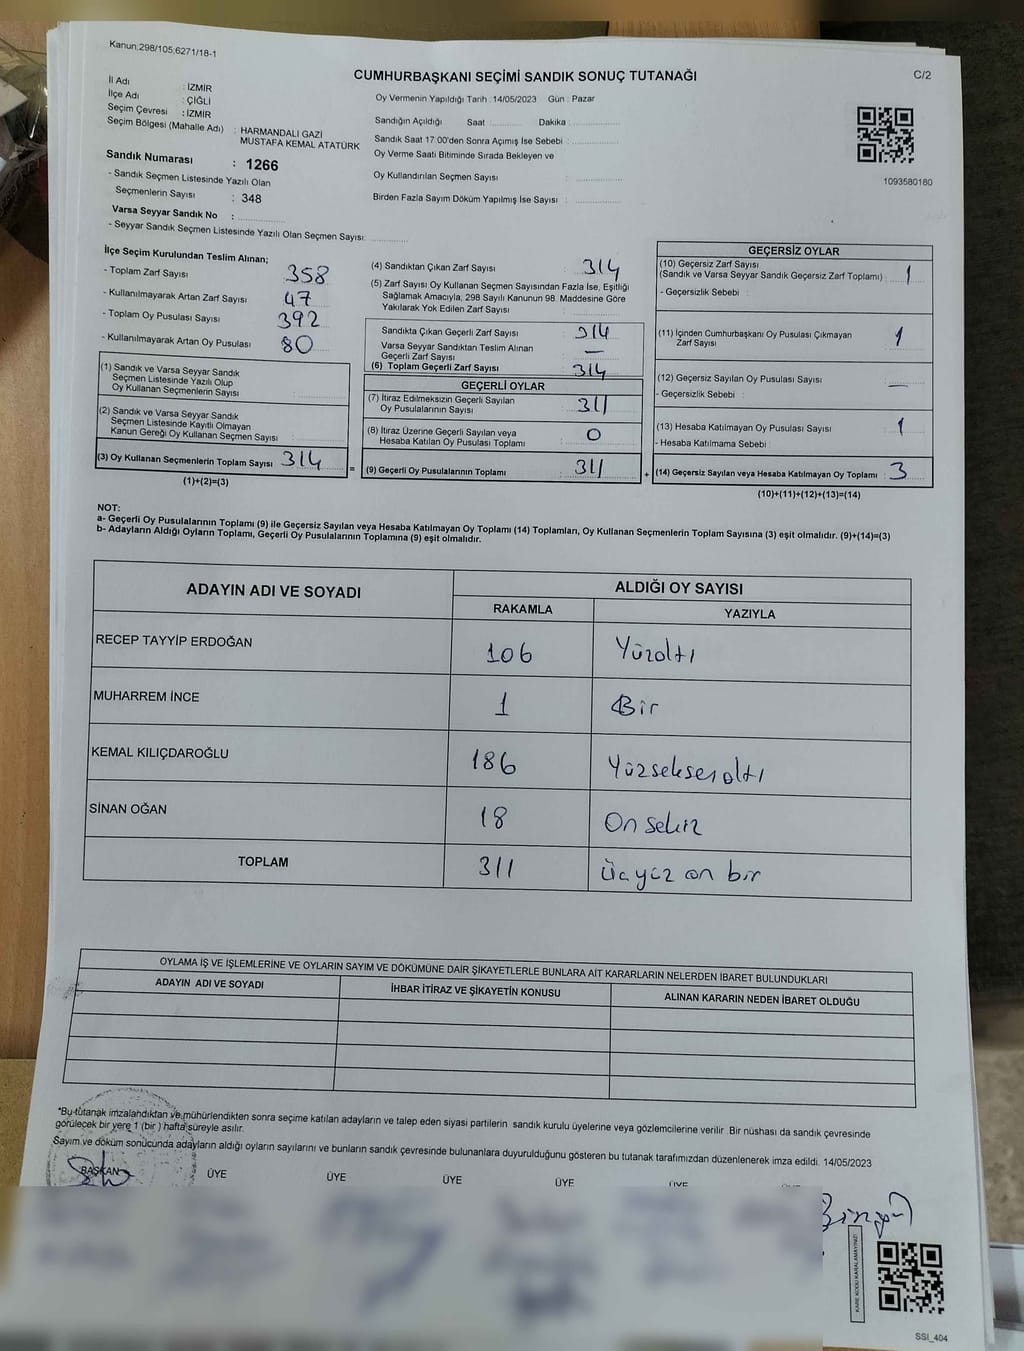 Kanun;298/105;6271/18-1
CUMHURBAŞKANI SEÇİMİ SANDIK SONUÇ TUTANAĞI
C/2
İl Adı : İZMİR
İlçe Adı : ÇİĞLİ
Seçim Çevresi : İZMİR
Seçim Bölgesi (Mahalle Adı) : HARMANDALI GAZİ
MUSTAFA KEMAL ATATÜRK
Sandık Numarası : 1266
- Sandık Seçmen Listesinde Yazılı Olan
Seçmenlerin Sayısı : 348
Varsa Seyyar Sandık No :
- Seyyar Sandık Seçmen Listesinde Yazılı Olan Seçmen Sayısı:
Oy Vermenin Yapıldığı Tarih : 14/05/2023 Gün : Pazar
Sandığın Açıldığı Saat : Dakika :
Sandık Saat 17:00'den Sonra Açımış İse Sebebi :
Oy Verme Saati Bitiminde Sırada Bekleyen ve
Oy Kullandırılan Seçmen Sayısı :
Birden Fazla Sayım Döküm Yapılmış İse Sayısı :
1093580180
İlçe Seçim Kurulundan Teslim Alınan;
- Toplam Zarf Sayısı 358
- Kullanılmayarak Artan Zarf Sayısı 47
- Toplam Oy Pusulası Sayısı 392
- Kullanılmayarak Artan Oy Pusulası 80
(1) Sandık ve Varsa Seyyar Sandık
Seçmen Listesinde Yazılı Olup
Oy Kullanan Seçmenlerin Sayısı :
(2) Sandık ve Varsa Seyyar Sandık
Seçmen Listesinde Kayıtlı Olmayan
Kanun Gereği Oy Kullanan Seçmen Sayısı :
(3) Oy Kullanan Seçmenlerin Toplam Sayısı 314
(1)+(2)=(3)
=
(4) Sandıktan Çıkan Zarf Sayısı : 314
(5) Zarf Sayısı Oy Kullanan Seçmen Sayısından Fazla İse, Eşitliği
Sağlamak Amacıyla; 298 Sayılı Kanunun 98. Maddesine Göre
Yakılarak Yok Edilen Zarf Sayısı :
Sandıkta Çıkan Geçerli Zarf Sayısı : 314
Varsa Seyyar Sandıktan Teslim Alınan
Geçerli Zarf Sayısı : —
(6) Toplam Geçerli Zarf Sayısı 314
GEÇERLİ OYLAR
(7) İtiraz Edilmeksizin Geçerli Sayılan
Oy Pusulalarının Sayısı : 311
(8) İtiraz Üzerine Geçerli Sayılan veya
Hesaba Katılan Oy Pusulası Toplamı : 0
(9) Geçerli Oy Pusulalarının Toplamı : 311
+
GEÇERSİZ OYLAR
(10) Geçersiz Zarf Sayısı
(Sandık ve Varsa Seyyar Sandık Geçersiz Zarf Toplamı) : 1
- Geçersizlik Sebebi :
(11) İçinden Cumhurbaşkanı Oy Pusulası Çıkmayan
Zarf Sayısı : 1
(12) Geçersiz Sayılan Oy Pusulası Sayısı : —
- Geçersizlik Sebebi :
(13) Hesaba Katılmayan Oy Pusulası Sayısı : 1
- Hesaba Katılmama Sebebi :
(14) Geçersiz Sayılan veya Hesaba Katılmayan Oy Toplamı : 3
(10)+(11)+(12)+(13)=(14)
NOT:
a- Geçerli Oy Pusulalarının Toplamı (9) ile Geçersiz Sayılan veya Hesaba Katılmayan Oy Toplamı (14) Toplamları, Oy Kullanan Seçmenlerin Toplam Sayısına (3) eşit olmalıdır. (9)+(14)=(3)
b- Adayların Aldığı Oyların Toplamı, Geçerli Oy Pusulalarının Toplamına (9) eşit olmalıdır.
ADAYIN ADI VE SOYADI ALDIĞI OY SAYISI
RAKAMLA YAZIYLA
RECEP TAYYİP ERDOĞAN 106 Yüzaltı
MUHARREM İNCE 1 Bir
KEMAL KILIÇDAROĞLU 186 Yüzseksenaltı
SİNAN OĞAN 18 On sekiz
TOPLAM 311 Üçyüz on bir
OYLAMA İŞ VE İŞLEMLERİNE VE OYLARIN SAYIM VE DÖKÜMÜNE DAİR ŞİKAYETLERLE BUNLARA AİT KARARLARIN NELERDEN İBARET BULUNDUKLARI
ADAYIN ADI VE SOYADI İHBAR İTİRAZ VE ŞİKAYETİN KONUSU ALINAN KARARIN NEDEN İBARET OLDUĞU
*Bu tutanak imzalandıktan ve mühürlendikten sonra seçime katılan adayların ve talep eden siyasi partilerin sandık kurulu üyelerine veya gözlemcilerine verilir. Bir nüshası da sandık çevresinde
görülecek bir yere 1 (bir ) hafta süreyle asılır.
Sayım ve döküm sonucunda adayların aldığı oyların sayılarını ve bunların sandık çevresinde bulunanlara duyurulduğunu gösteren bu tutanak tarafımızdan düzenlenerek imza edildi. 14/05/2023
BAŞKAN ÜYE ÜYE ÜYE ÜYE ÜYE
KARE KODU KARALAMAYINIZ!
SSI_404